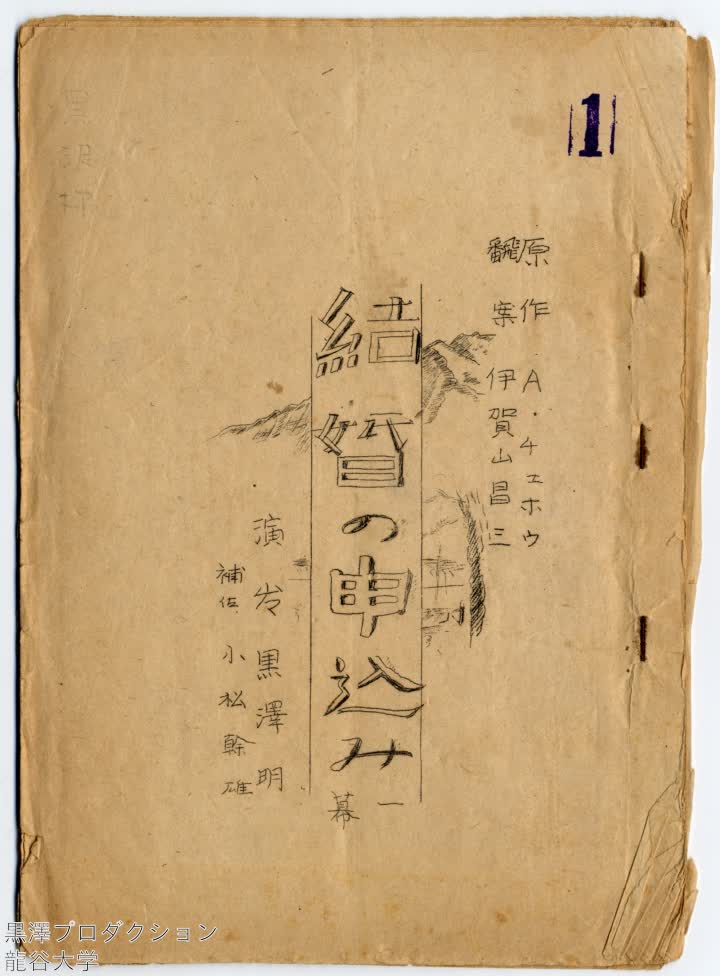 1
原作 A・チエホウ
飜案 伊賀山昌三
結婚の申込み
一幕
演出 黒澤明
補佐 小松幹雄
黒澤プロダクション
龍谷大学